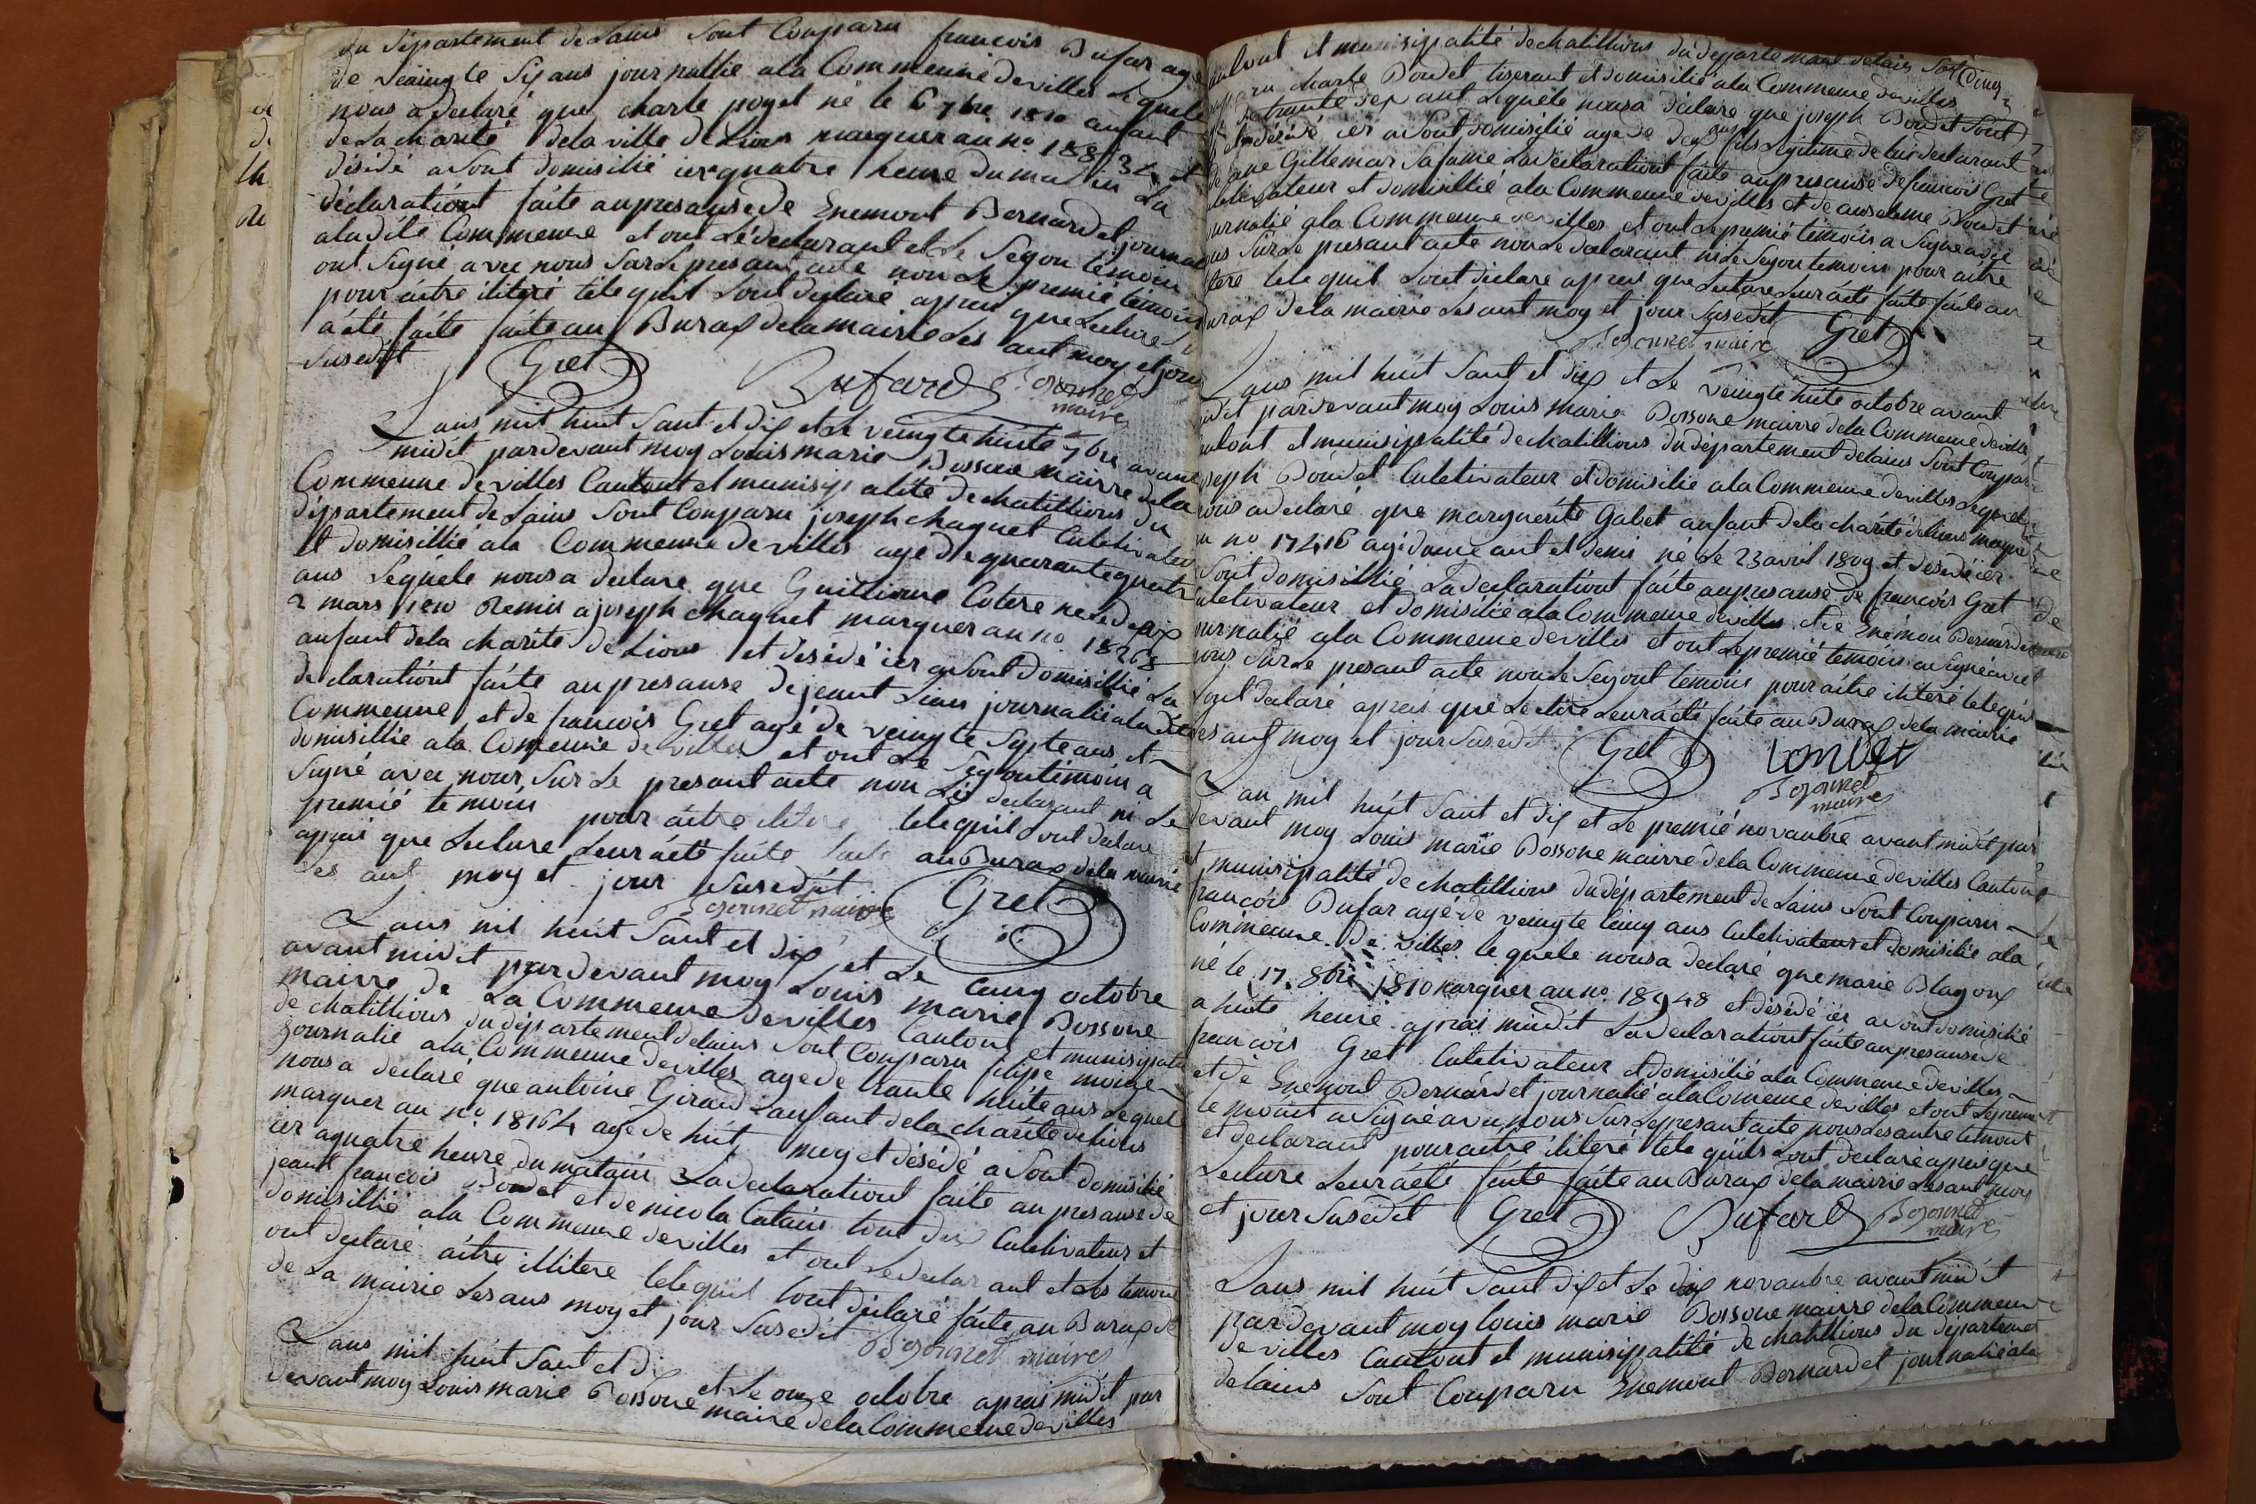 du département de Lains sont Conparu francois Bufar age
de veaingte Six ans journallié ala Commeune de villes Lequele
nous a declaré que charle poget né le 6 7bre 1810 anfant
de La charité dela ville de Lions marquer au no 18834 et
désédé a sont domisilié ier a quatre heure du matin La
déclarationt faite anpresanse de Enemont Bernardet journa
aladite Commeune et ont Ledeclarant et Le Segon témoin
ont Signe avec nous Sur Le presant acte non Le premié temoin
pour aitre iliteré tele quil Lont declaré aprais que Lecture
a été faite faite au Burax de la mairie Les ant moy et jour
Susedit
Gret Bufard Bosonnet
maire
Lans mil huit Sant et dix et Le veingte huite 7bre avant
midit pardevant moy Louis marie Bossone mairre dela
Commeune de villes Cantont et munisipalité de chatillions du
département de Lains Sont Conparu joseph chagnet Culetivateur
et domisillié ala Commeune de villes agé de quarante quatre
ans Lequele nous a declare que Guillioume Cotere né le deix
2 mars 1810 Remis a joseph chagnet marquer au no 18268
anfant dela charite de Lions et désédé ier a sont domisillié La
declarationt faite anpresanse de jeant Lians journalié ala de
Commeune et de francois Gret agé de veingte Septe ans et
domisillié ala Commeune de villes et ont Le Segon témoin a
Signé avec nous Sur Le presant acte non Le declarant ni Le
premié temoin pour aitre ilitere tele quil Lont declare
aprais que Lecture Leur a été faite faite au Burax dela mairie
Les ant moy et jour Susedit
Bosonnet maire Gret
Lans mil huit Sant et dix et Le Cainq octobre
avant midit pardevant moy Louis marie Bossone
mairre de La Commeune de villes Cantont et munisipalite
de chatillions du département de Lains Sont Conparu filipe monge
journalié ala Commeune de villes age de trante huite ans Lequel
nous a declaré que antoine Giraud anfant dela charite de Lions
marquer au no 18164 age de huit moy et désédé a Sont domisilié
ier aquatre heure du matain La declarationt faite an presanse de
jeant francois Bondet et de nicola Catain tout deu Culetivateur et
domisillié ala Commeune de villes et ont Le declarant et Les temoins
ont declaré aitre illitere tele quil Lont déclaré faite au Burax
de La mairie Les ans moy et jour Susedit Bosonnet maire
Lans mil huit Sant et di et Le onze octobre aprais midit par
devant moy Louis marie Bossone maire dela Commeune de villes
Cantont et munisipalité de chatillions du département delains Sont
Conparu charle Bondet tiserant et domisilié ala Commeune de villes
de trante sex ant Lequéle nous a déclaré que joseph Bondet Sont
et désédé ier a sont domisilié age de deux ans fils Legitime de lui declarant
de jane Gillemar Safame La declarationt faite anpresanse de francois Gret
Culetivateur et domisillié ala Commeune de villes et de anselme Bondet
journalié ala Commeune de villes et ont Le premié témoin a Signe avec
nous Sur Le presant acte non Le declarant ni Le Segon temoin pour aitre
ilitere tele quil Lont declare aprais que Lecture Leur a été faite faite au
Burax de la mairie Les ant moy et jour Susedit
Bosonnet maire Gret
Lans mil huit Sant et dix et Le veingte huite octobre avant
midit pardevant moy Louis marie Bossone mairre dela Commeune de villes
Cantont et munisipalité de chatillions du département delains Sont Conparu
joseph Bondet Culetivateur et domisilie ala Commeune de villes Lequel
nous a declaré que marguerite Gabet anfant dela charité de lions marque
au no 17416 agé d'une ant et demis né Le 23 avril 1809 et désédé ier
a Sont domisillié La declarationt faite anpresanse de francois Gret
Culetivateur et domisilié ala Commeune de villes et de Enemon Bernardet
journalié ala Commeune de villes et ont Le premié temoin a Signé avec
nous Sur Le presant acte non Le Segont temoin pour aitre iliteré tele quil
Lont declaré aprais que Lecture Leur a été faite au Burax de la mairie
Les ant moy et jour Susedit Gret bondet
Bosonnet
maire
Lan mil huit Sant et dix et Le premié novanbre avant midit par
devant moy Louis marie Bossone mairre dela Commeune de villes Cantont
et munisipalité de chatillions du département de Lains Sont Conparu
francois Bufar agé de veingte Cinq ans Culetivateur et domisilié ala
Commeune de villes le quele nous a declaré que marie Blagoux
né le 17 8bre 1810 marquer au no 18948 et désédé ier a sont domisilié
a huite heure aprais midit La declarationt faite anpresanse de
francois Gret Culetivateur et domisilié ala Commeune de villes
et de Enemont Bernardet journalié ala Comeune de villes et ont Le premié
temoint a Signé avec nous Sur Le presant acte non Les autre temont
et declarant pour aitre iliteré tele quils Lont declaré aprais que
Lecture Leur a été faite faite au Burax de la mairie Les ant moy
et jour Susedit Gret Bufard Bosonnet
maire
Lans mil huit Sant dix et Le dix novanbre avant midit
par devant moy louis marie Bossone mairre dela Commeune
de villes Cantont et munisipalité de chatillions du département
delains Sont Conparu Enemont Bernardet journalié ala